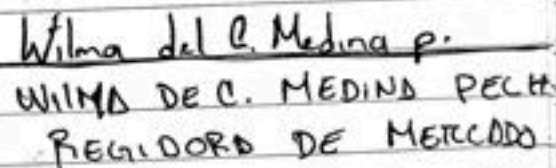 Wilma del C. Medina p.
WILMA DE C. MEDINA PECH.
REGIDORA DE MERCADO